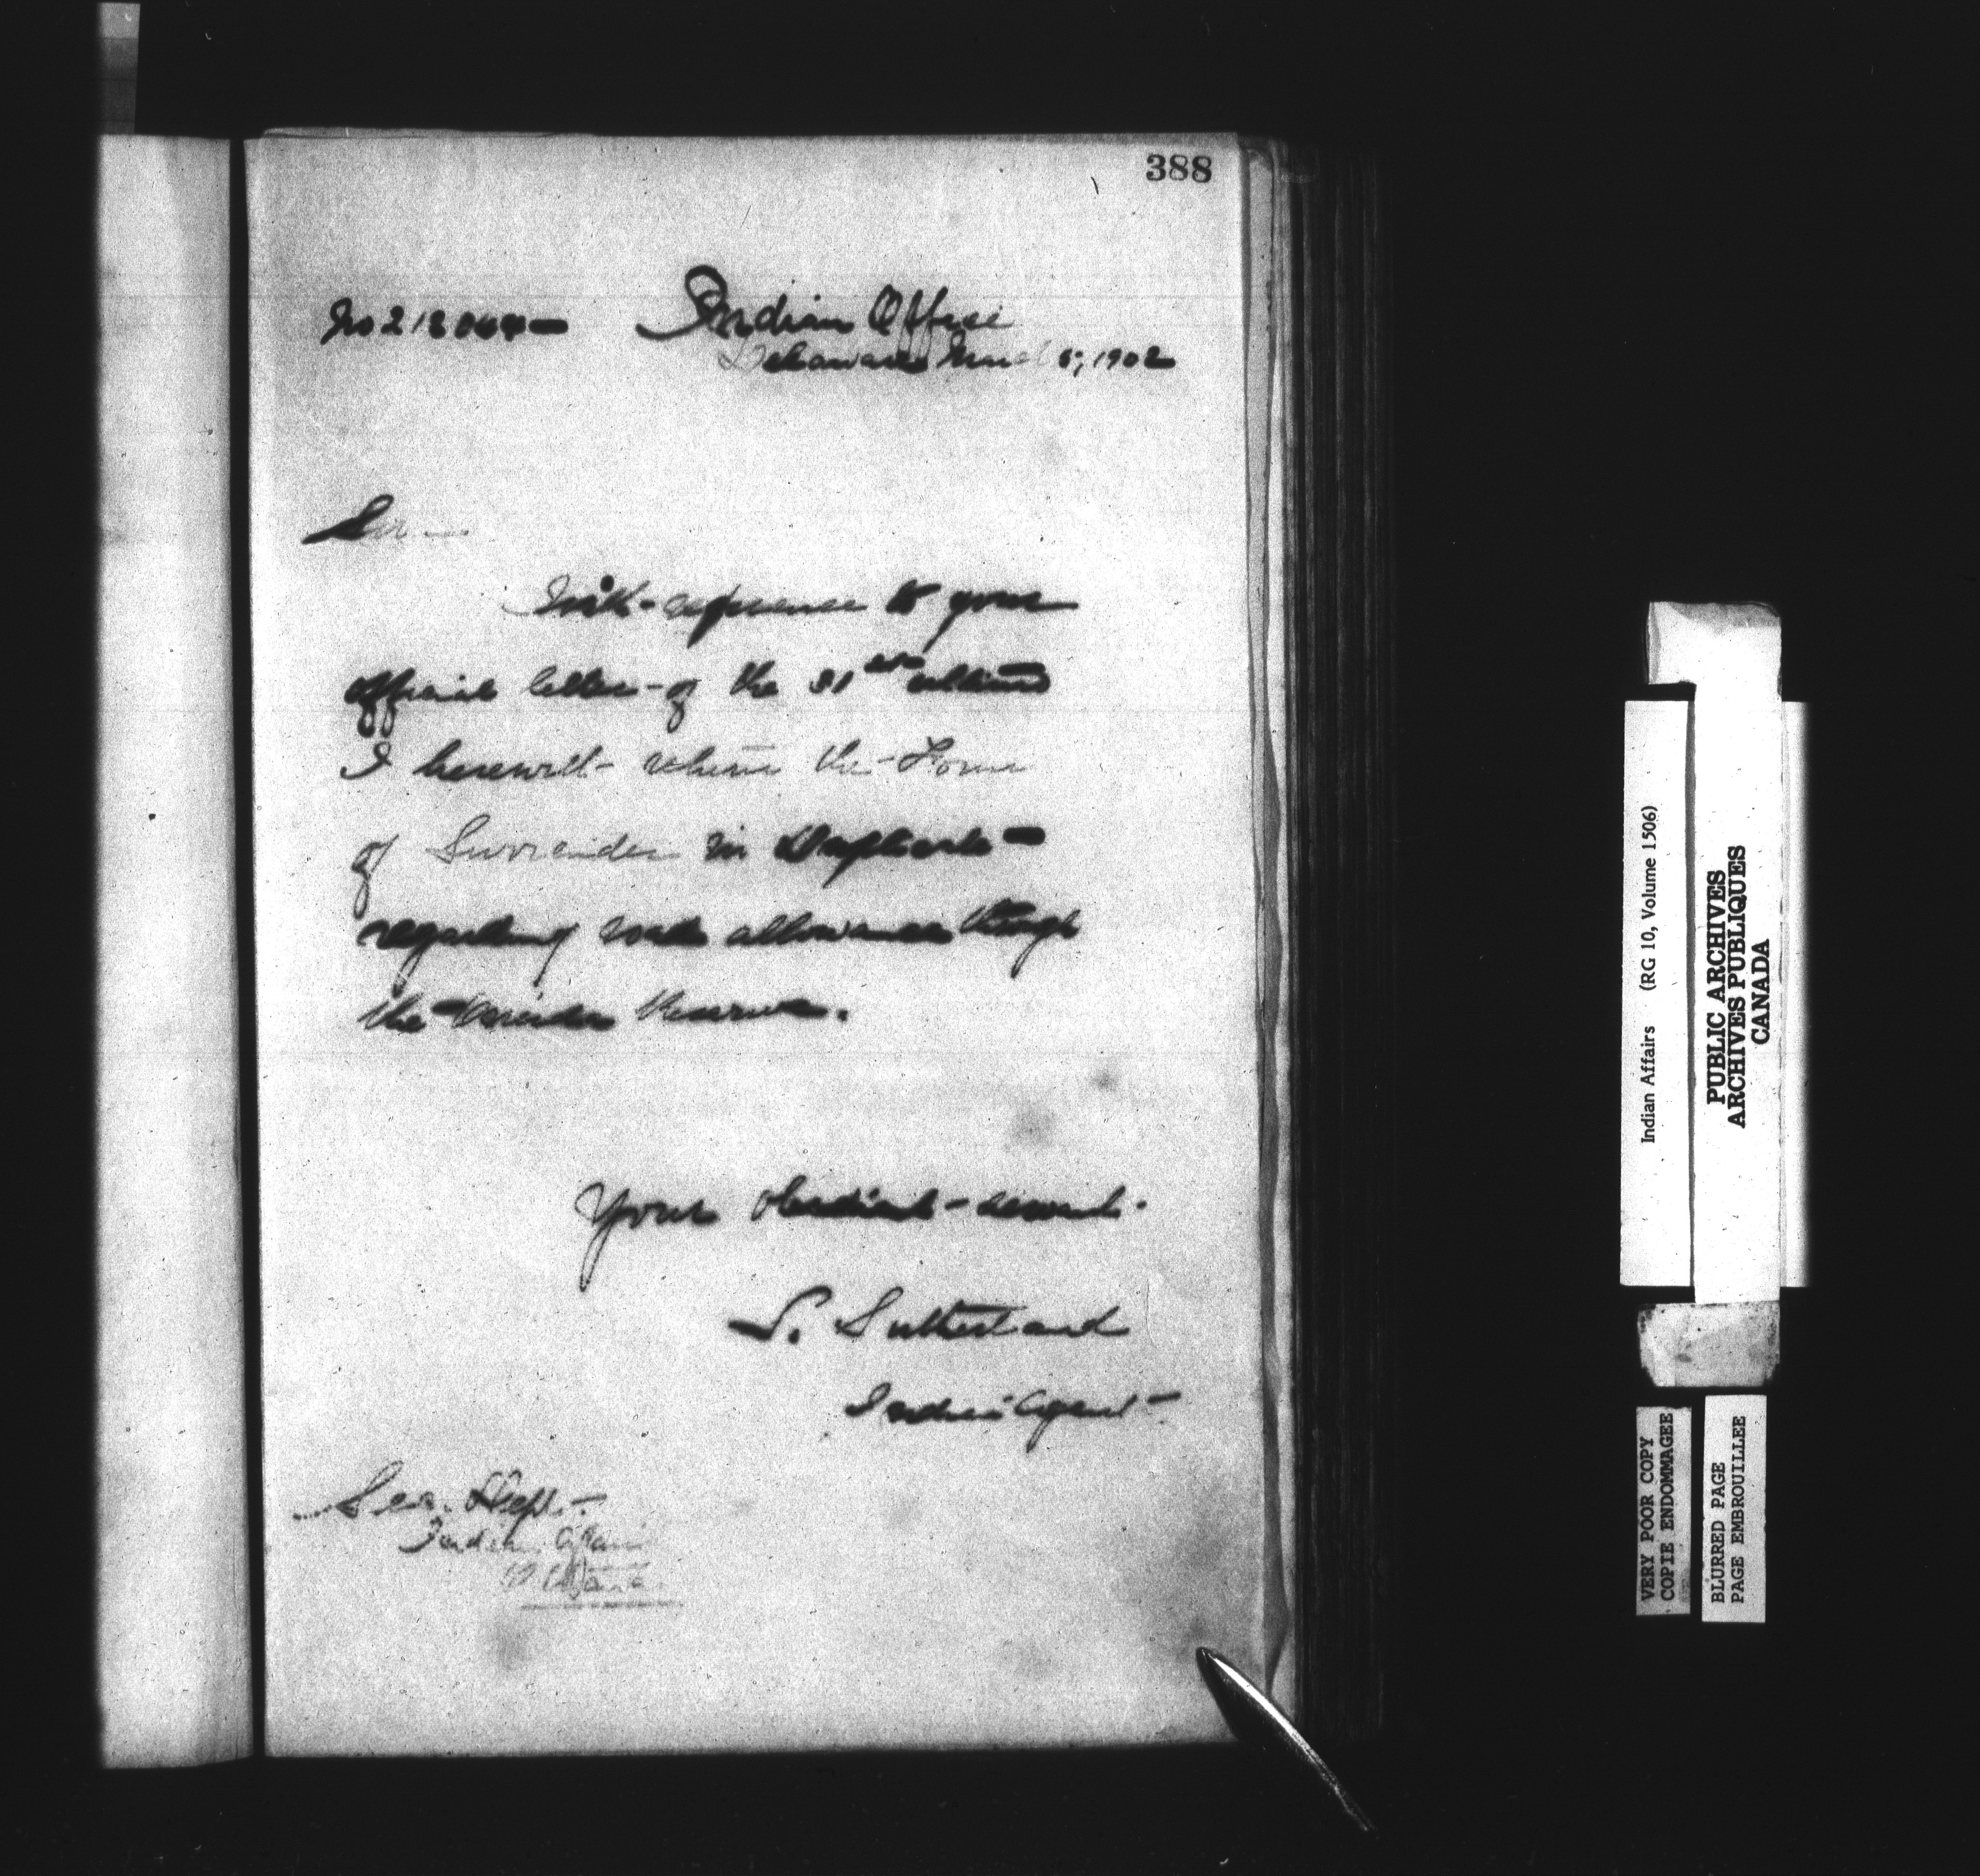 388
No 212064
Indian Office
Delaware 1902
Sir
With reference to your
official letter of the 31st ultimo
I herewith return the Form
of Surrender in Duplicate
regarding road allowance through
the Oneida Reserve.
Your obedient servant.
S. Sutherland
Indian Agent
Sec. Dept.
Indian Affairs
Ottawa
Indian Affairs (RG 10, Volume 1506)
PUBLIC ARCHIVES
ARCHIVES PUBLIQUES
CANADA
VERY POOR COPY
COPIE ENDOMMAGEE
BLURRED PAGE
PAGE EMBROUILLEE